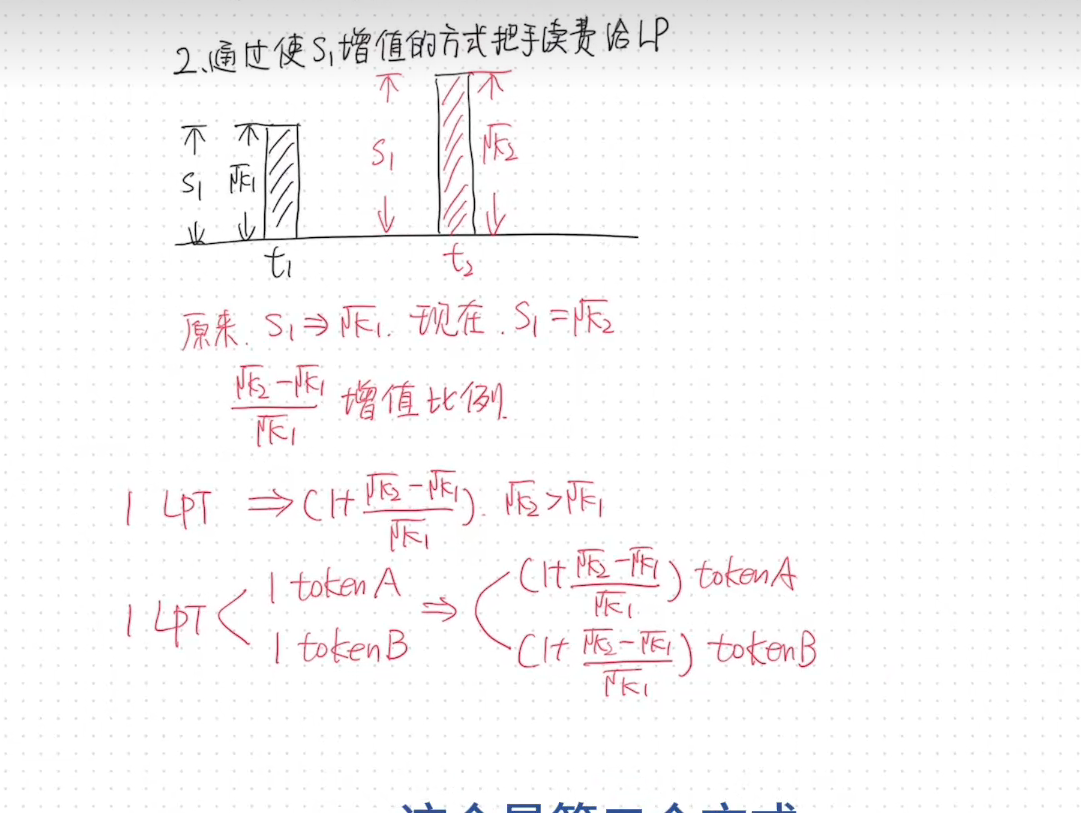 2、通过使S₁增值的方式把手续费给LP
S₁ √K₁ S₁ √K₂
t₁ t₂
原来. S₁ ⇒ √K₁. 现在. S₁ = √K₂
(√K₂ - √K₁)/√K₁ 增值比例.
1 LPT ⇒ (1+ (√K₂ - √K₁)/√K₁). √K₂ > √K₁
1 LPT < 1 tokenA ⇒ (1+ (√K₂ - √K₁)/√K₁) tokenA
1 tokenB (1+ (√K₂ - √K₁)/√K₁) tokenB